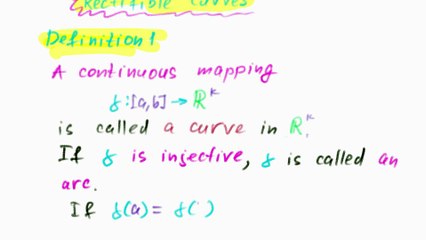 Rectifible curves
Definition 1
A continuous mapping
γ:[a,b] → ℝᵏ
is called a curve in ℝ.
If γ is injective, γ is called an
arc.
If γ(a) = γ( )